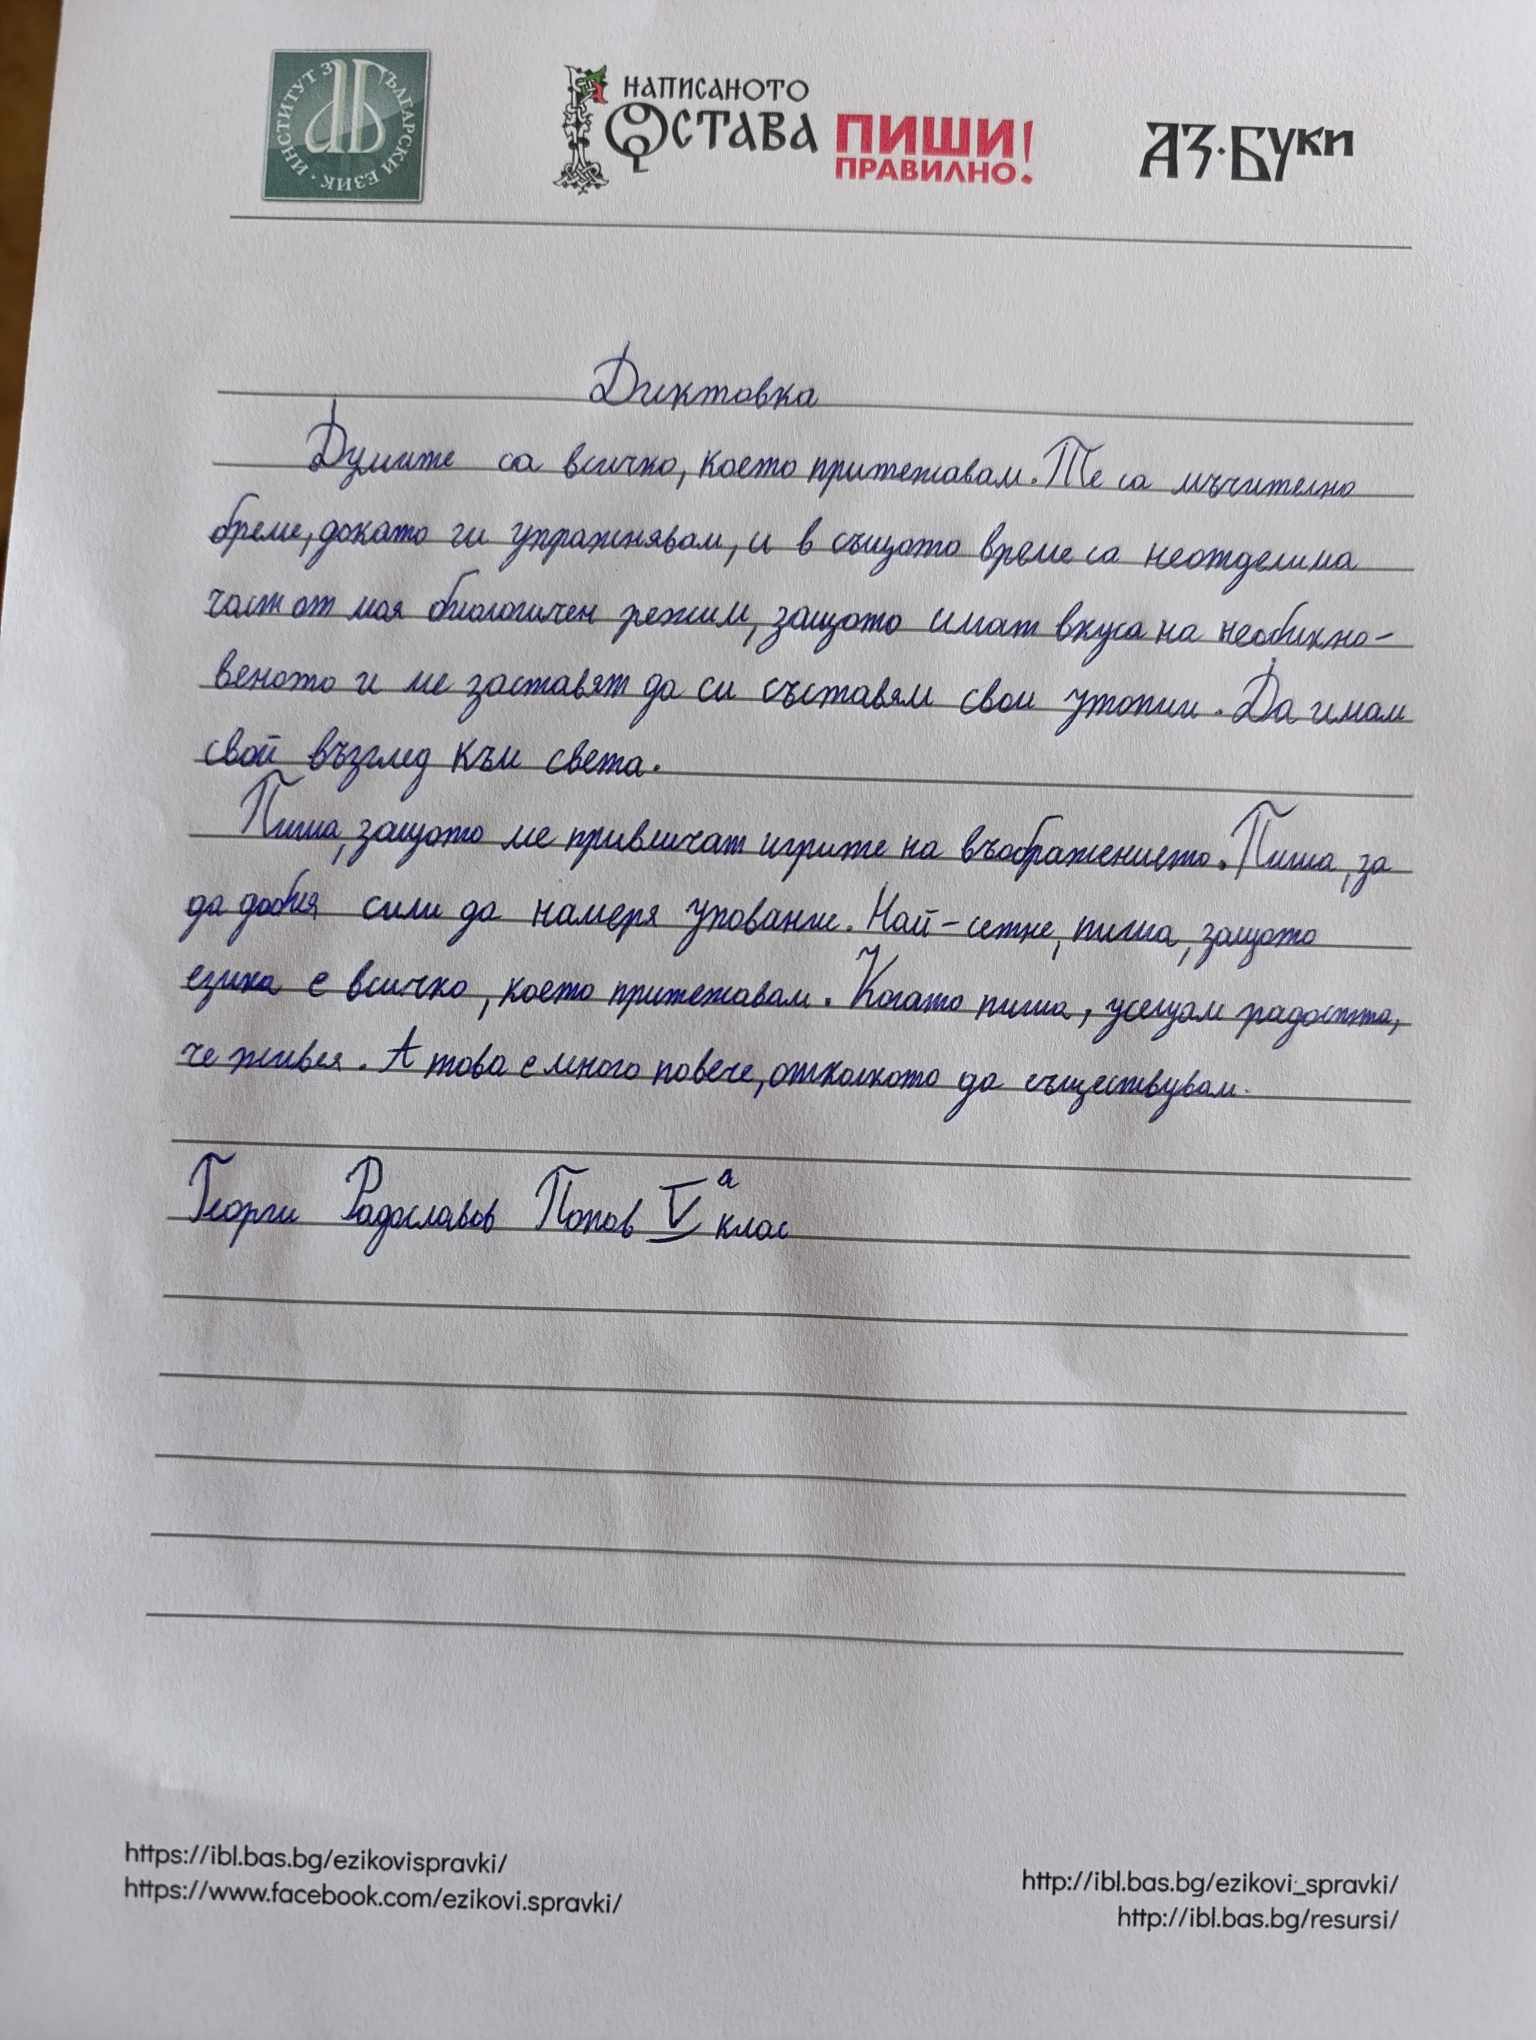 ИНСТИТУТ ЗА БЪЛГАРСКИ ЕЗИК
НАПИСАНОТО
ОСТАВА
ПИШИ!
ПРАВИЛНО.
АЗ·БУКИ
Диктовка
Думите са всичко, което притежавам. Те са мъчително
бреме, докато ги упражнявам, и в същото време са неотделима
част от моя биологичен режим, защото имат вкуса на необикно-
веното и ме заставят да си съставям свои утопии. Да имам
свой възглед към света.
Пиша, защото ме привличат игрите на въображението. Пиша, за
да добия сили да намеря упование. Най-сетне, пиша, защото
езика е всичко, което притежавам. Когато пиша, усещам радостта,
че живея. А това е много повече, отколкото да съществувам.
Георги Радославов Попов V а клас
https://ibl.bas.bg/ezikovispravki/
https://www.facebook.com/ezikovi.spravki/
http://ibl.bas.bg/ezikovi_spravki/
http://ibl.bas.bg/resursi/